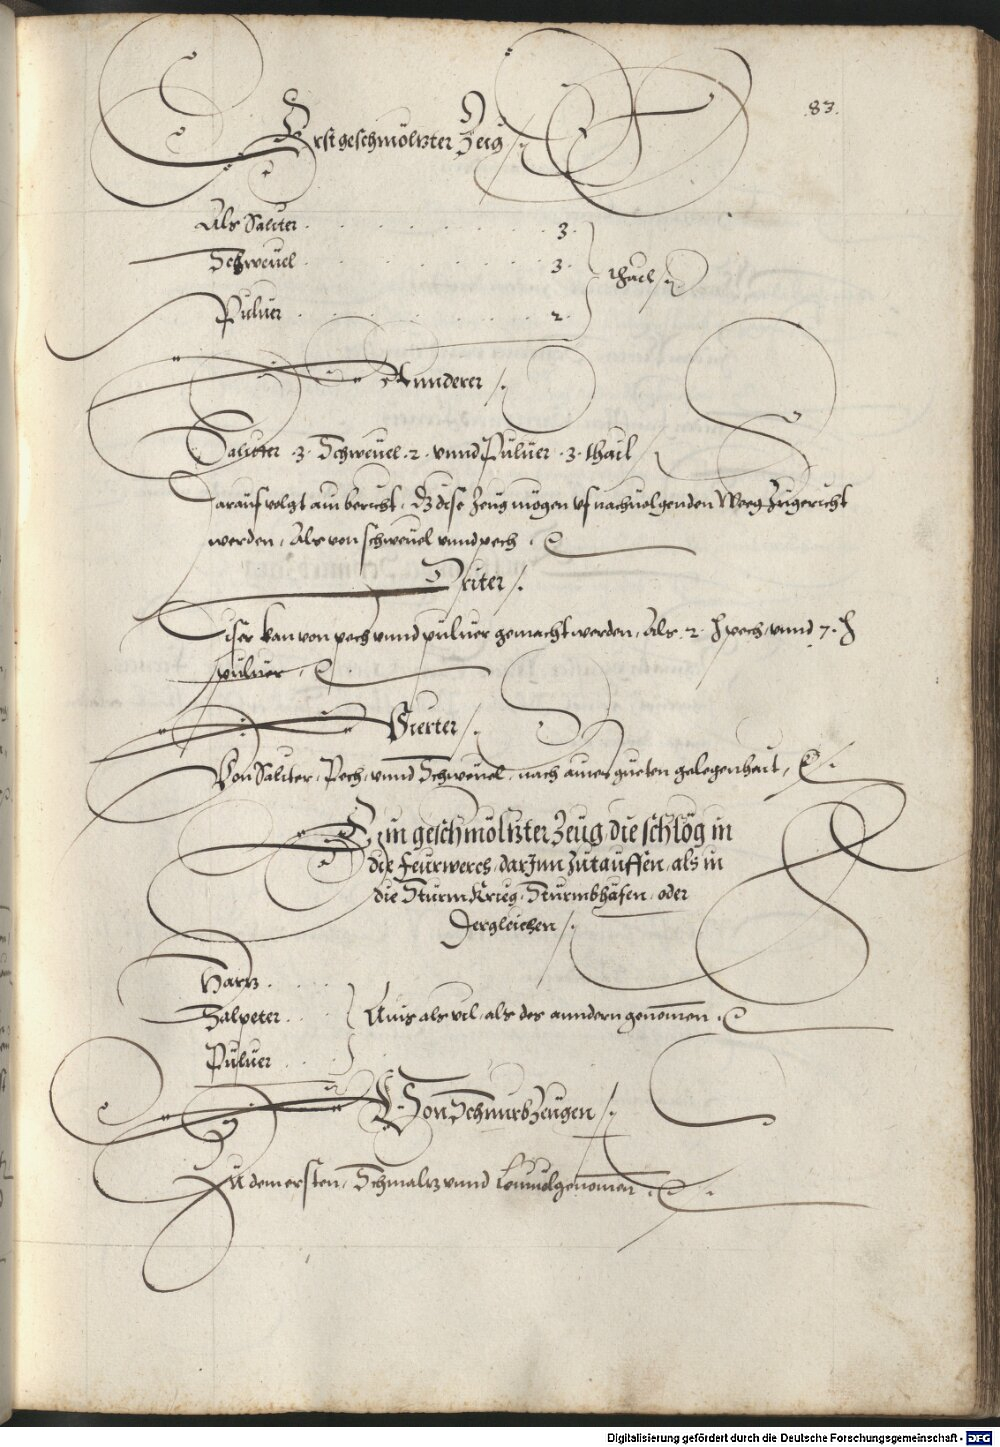 83.
Erst geschmöltzter Zeüg /.
Als Saliter . . . . . . 3.
Schweüel . . . . . . 3. thail /.
Puluer . . . . . . 2.
Annderer /.
Saliter .3. Schweüel .2. vnnd Puluer .3. thail
Darauf volgt ain bericht, dz dise Zeüg mögen vf nachuolgenden Weeg Zugericht
werden, Als von schweüel vnnd pech .
Driter /.
Diser kan von pech vnnd puluer gemacht werden, Als .2. ℔ pech, vnnd 7. ℔
puluer,
Vierter /.
Von Saliter, Pech, vnnd Schweüel, nach aines gueten gelegenhait,
Ein geschmöltzter Zeug, die schlög in
die Feurwerck, darJnn Zutauffen, als in
die Sturm Krieg, Sturmbhäfen, oder
Dergleichen /.
Hartz . . . .
Salpeter . . . Ains als vil, als des anndern genomen .
Puluer . . .
Von Schnurb Zeugen /.
Zu dem ersten, Schmaltz vnnd genomen .
Digitalisierung gefördert durch die Deutsche Forschungsgemeinschaft - DFG